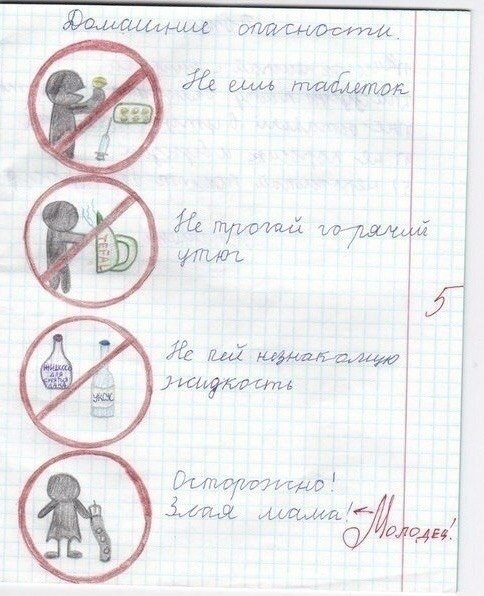 Домашние опасности.
Не ешь таблеток
Не трогай горячий
утюг
TEFAL
5
Не пей незнакомую
жидкость
Жидкость
для
снятия
лака
УКСУС
Осторожно!
Злая мама!
Молодец!